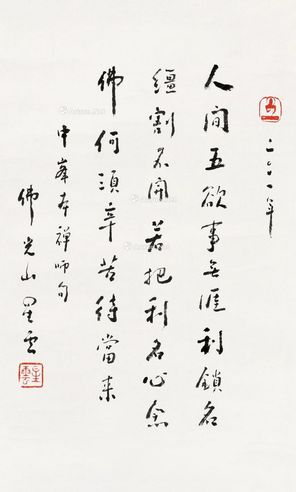 二〇〇一年
人間五欲事無涯利鎖名
繮割不開若把利名心念
佛何須辛苦待當来
中峯本禪師句
佛光山星雲
星雲